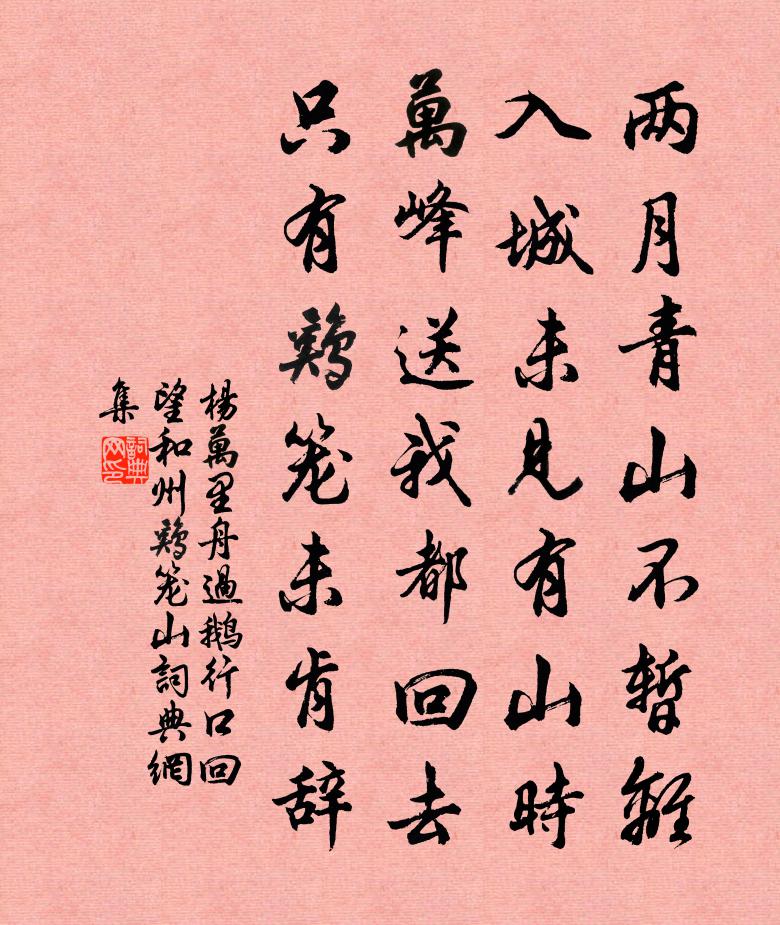 两月青山不暫離
入城未見有山時
萬峰送我都回去
只有鷄笼未肯辞
楊萬里舟過鵝行口回
望和州鷄笼山詞典網
集
詞典網印